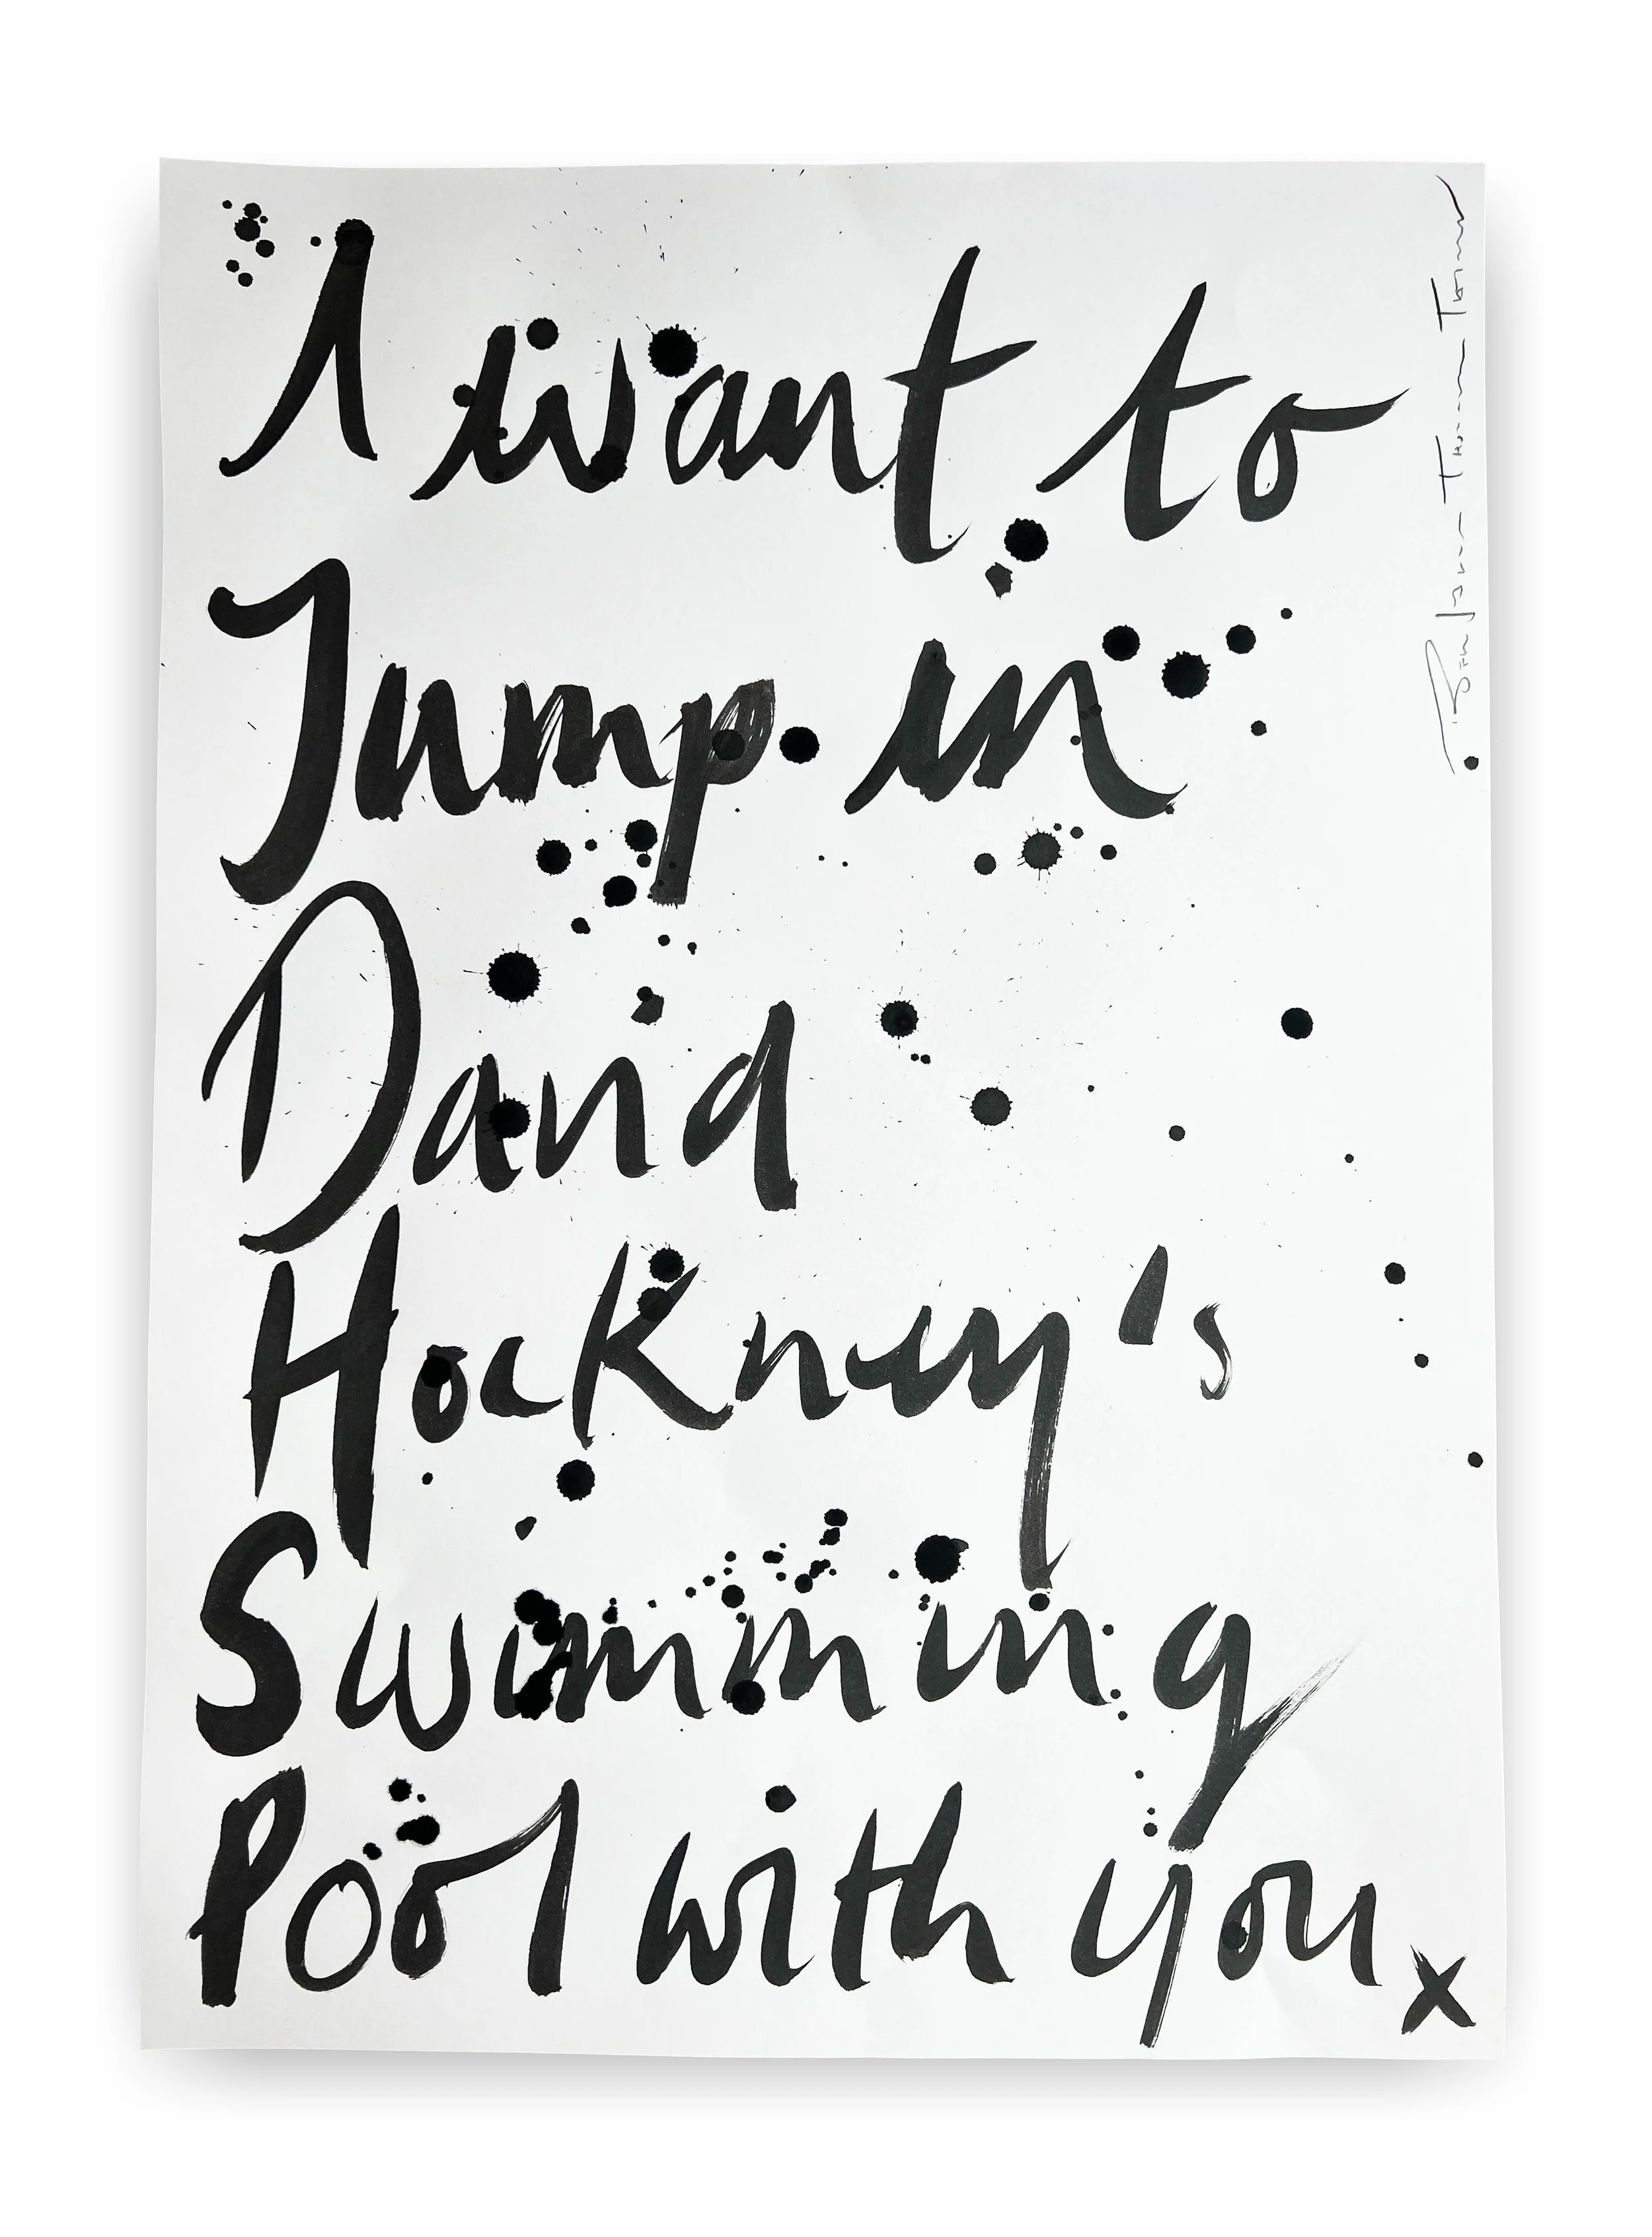 I want to
Jump in
David
Hockney's
Swimming
Pool with you
x